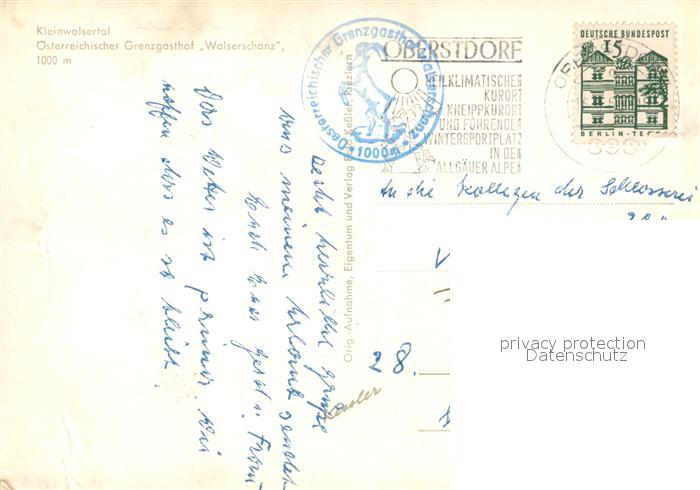 Kleinwalsertal
Österreichischer Grenzgasthof „Walserschanz",
1000 m
Oesterreichischer Grenzgasthof Walserschanz
1000 m
OBERSTDORF
HEILKLIMATISCHER
KURORT
KNEIPPKURORT
UND FÜHRENDER
WINTERSPORTPLATZ
IN DEN
ALLGÄUER ALPEN
DEUTSCHE BUNDESPOST
15
BERLIN-TE
OBERSTDORF
898
Orig.-Aufnahme, Eigentum und Verlag Keßler, Riezlern
recht herzliche Grüße
aus meinem Urlaub sendet
Euch Euer u. Frau
Das Wetter ist prima. Wir
hoffen daß es so bleibt.
An die Kollegen der Schlosserei
28.
Kessler
privacy protection
Datenschutz